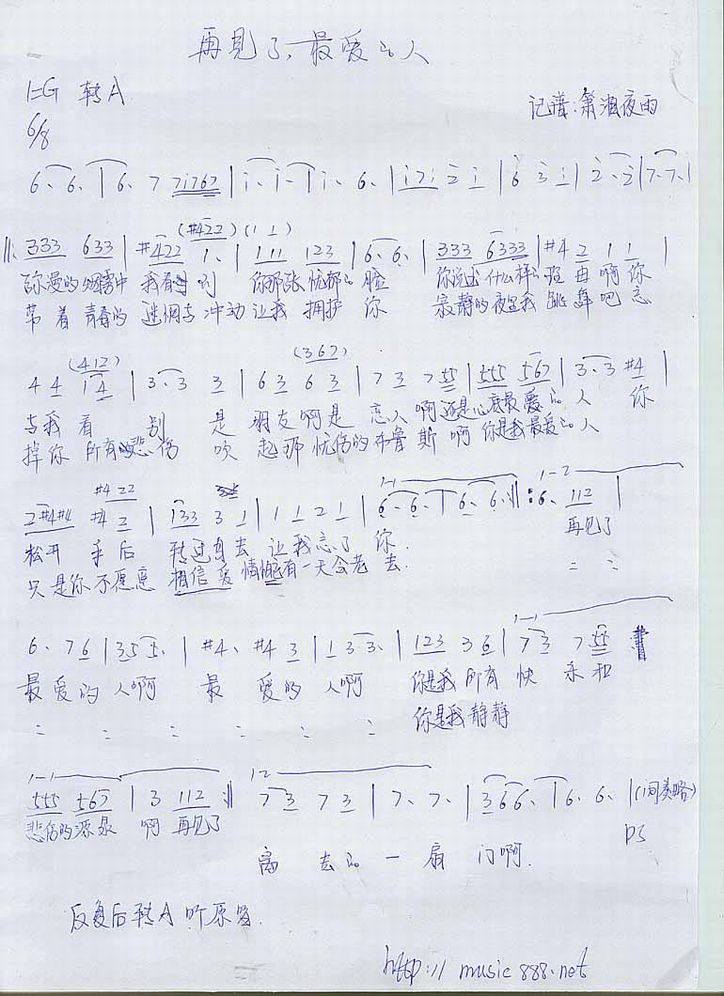 再见了,最爱的人
1=G 转A
记谱:萧湘夜雨
6/8
6. 6. | 6. 7 71767 | i. i. | i. 6. | i7i 2 i | 6 3 i | 2. 2 | 7. 7. |
(#422) (1 1)
333 633 | #422 1. | 111 123 | 6. 6. | 333 6333 | #4 2 1 1 |
弥漫的烟雾中 我看到 你那张忧郁的脸 你说 什么样的 由 啊 你
带着青春的迷惘与冲动 让我拥护 你 寂静的夜里我 跳舞吧 忘
(412) (367)
4 4 1 4 | 3. 3 3 | 6 3 6 3 | 7 3 7 55 | 555 567 | 3. 3 #4 |
与我看 别 是 朋友啊是 恋人 啊 还是心底最爱的 人 你
掉你 所有的悲伤 吹 起那 忧伤的布鲁 斯 啊 你是我最爱的人
#4 22 1-1 1-2
2#4#4 #4 2 | 133 3 1 | 1 1 2 1 | 6. 6. | 6. 6. :|| 6. 112 |
松开 手后 转过身去 让我忘了 你. 再见了
只是你不愿意 相信爱情 有一天会老 去. = =
1-1
6. 7 6 | 35 5. | #4. #4 3 | 1 3 3. | 123 3 6 | 7 3 7 55
最 爱的 人啊 最 爱的 人啊 你是我 所有 快 乐 和
= = = = = = 你是我静静
1-1 1-2
555 567 | 3 112 :|| 7 3 7 3 | 7. 7. | 3 6 6. | 6. 6. | (间奏略)
悲伤的源泉 啊 再见了 D.S
离 去的 一 扇 门啊.
反复后转A 听原唱.
http:// music888.net